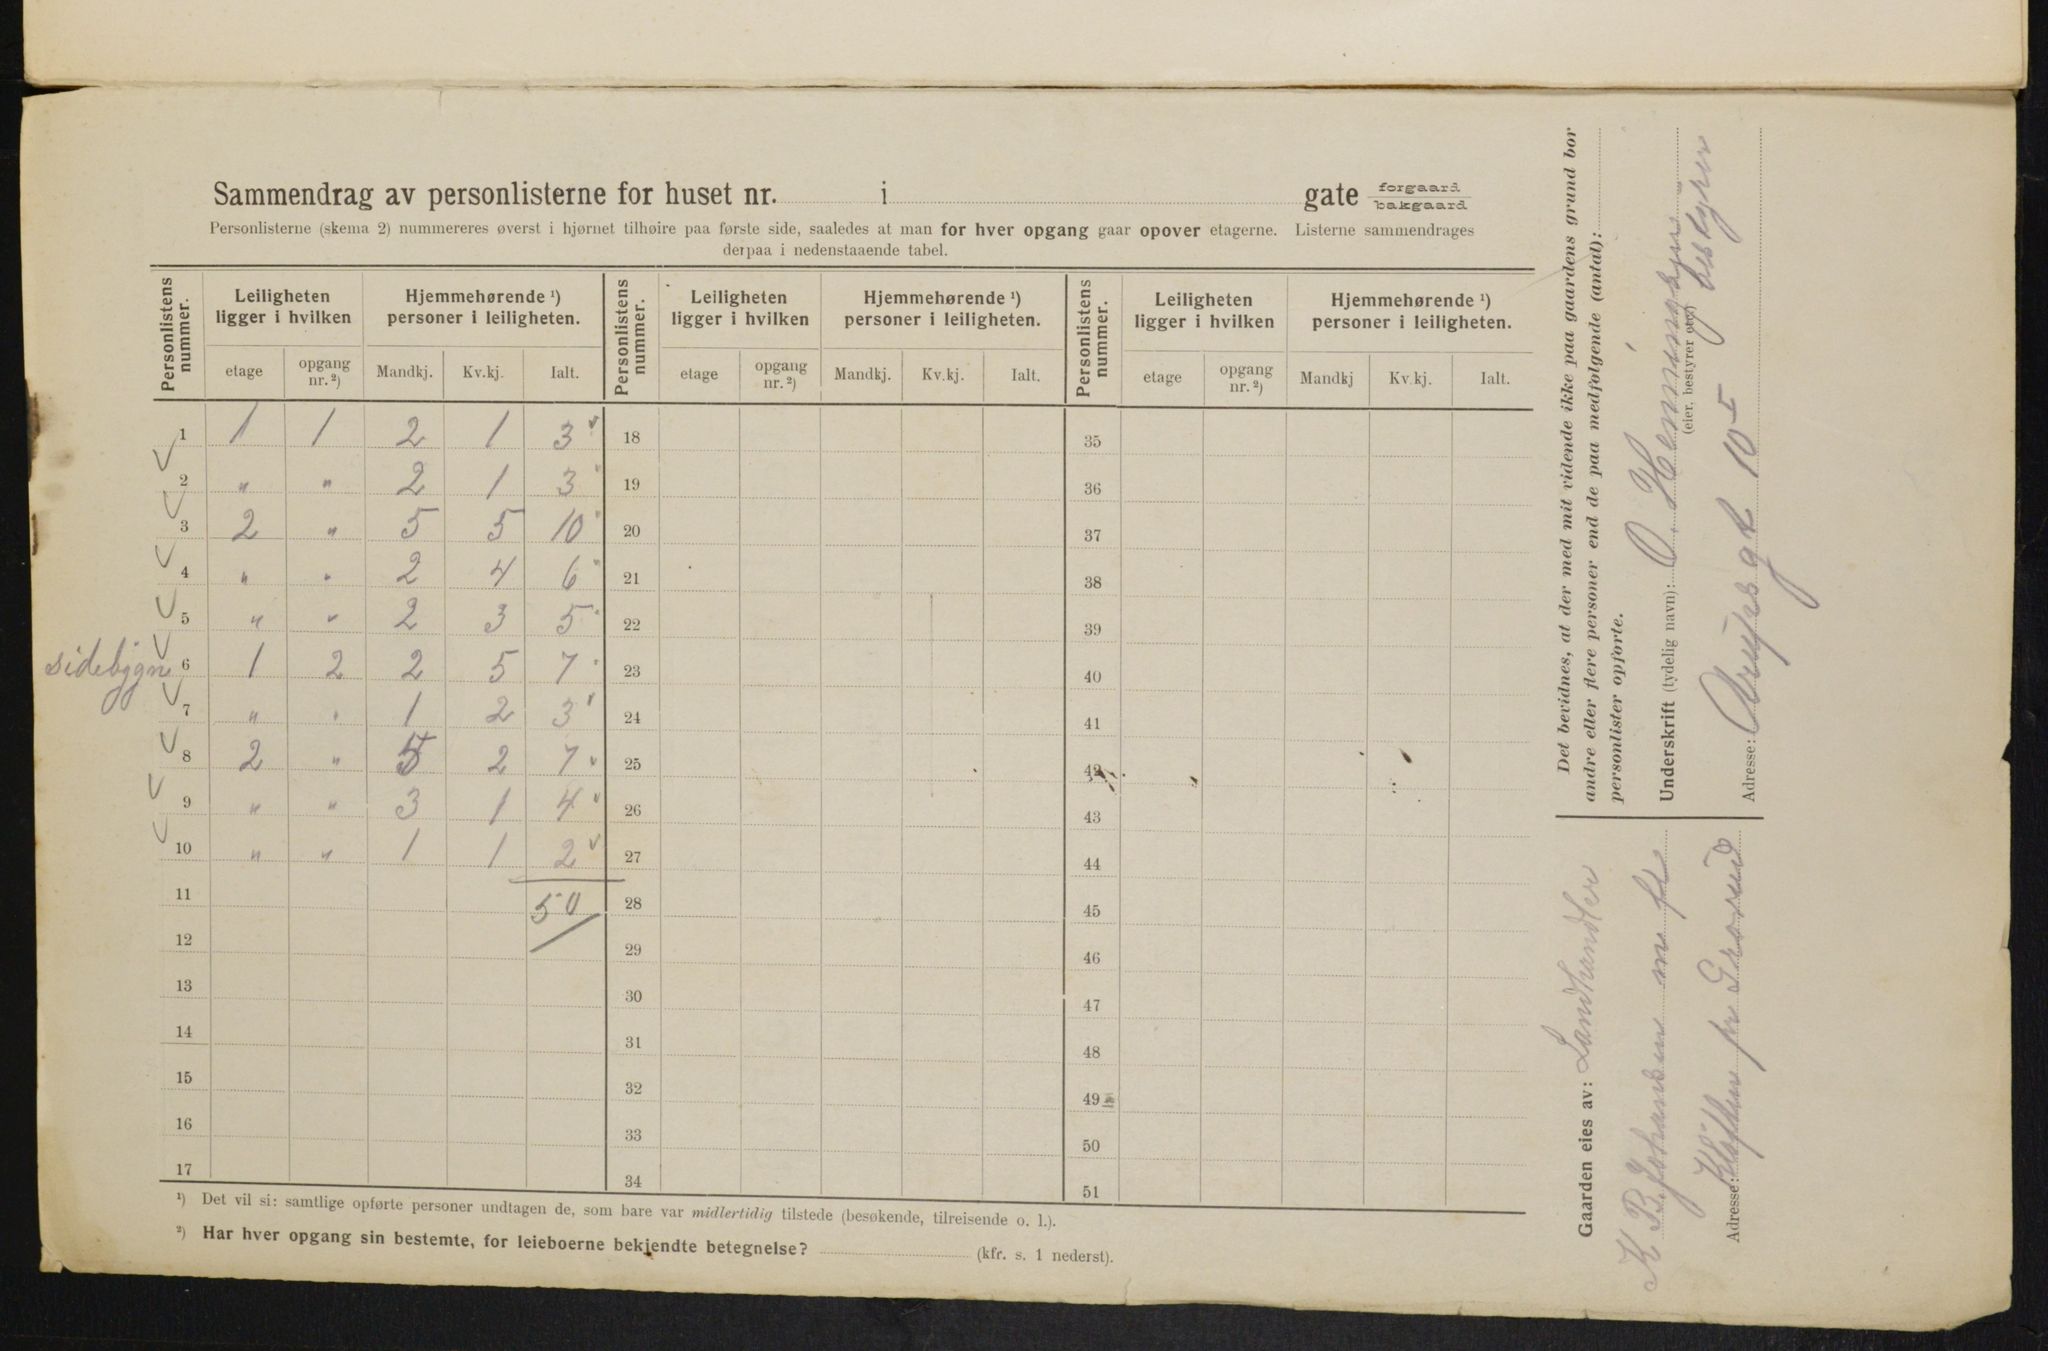 Sammendrag av personlisterne for huset nr. i gate forgaard bakgaard
Personlisterne (skema 2) nummereres øverst i hjørnet tilhøire paa første side, saaledes at man for hver opgang gaar opover etagerne. Listerne sammendrages
derpaa i nedenstaaende tabel.
Personlistens nummer. Leiligheten ligger i hvilken Hjemmehørende ¹) personer i leiligheten. Personlistens nummer. Leiligheten ligger i hvilken Hjemmehørende ¹) personer i leiligheten. Personlistens nummer. Leiligheten ligger i hvilken Hjemmehørende ¹) personer i leiligheten.
etage opgang nr. ²) Mandkj. Kv.kj. Ialt. etage opgang nr. ²) Mandkj. Kv.kj. Ialt. etage opgang nr. ²) Mandkj Kv.kj. Ialt.
1 1 1 2 1 3 18 35
2 " " 2 1 3 19 36
3 2 " 5 5 10 20 37
4 " " 2 4 6 21 38
5 " " 2 3 5 22 39
sidebygn 6 1 2 2 5 7 23 40
7 " " 1 2 3 24 41
8 2 " 5 2 7 25 42
9 " " 3 1 4 26 43
10 " " 1 1 2 27 44
11 50 28 45
12 29 46
13 30 47
14 31 48
15 32 49
16 33 50
17 34 51
¹) Det vil si: samtlige opførte personer undtagen de, som bare var midlertidig tilstede (besøkende, tilreisende o. l.).
²) Har hver opgang sin bestemte, for leieboerne bekjendte betegnelse? (kfr. s. 1 nederst).
Det bevidnes, at der med mit vidende ikke paa gaardens grund bor
andre eller flere personer end de paa medfølgende (antal):
personlister opførte.
Underskrift (tydelig navn): O. Henningsen bestyrer
(eier, bestyrer etc.)
Adresse: 105
Gaarden eies av: Landhandler
K B Johansen m fl
Adresse: Kløften pr Grorud